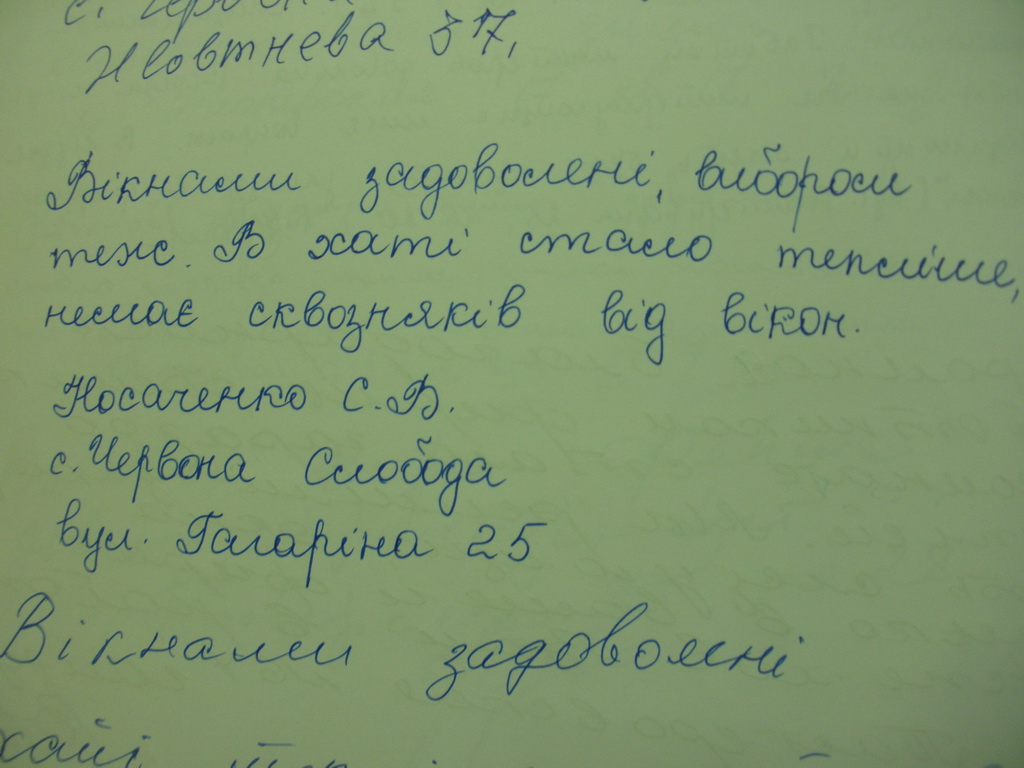 с. Червона
Жовтнева 317,
Вікнами задоволені, вибором
теж. В хаті стало тепліше,
немає сквозняків від вікон.
Носаченко С.В.
с. Червона Слобода
вул. Гагаріна 25
Вікнами задоволені